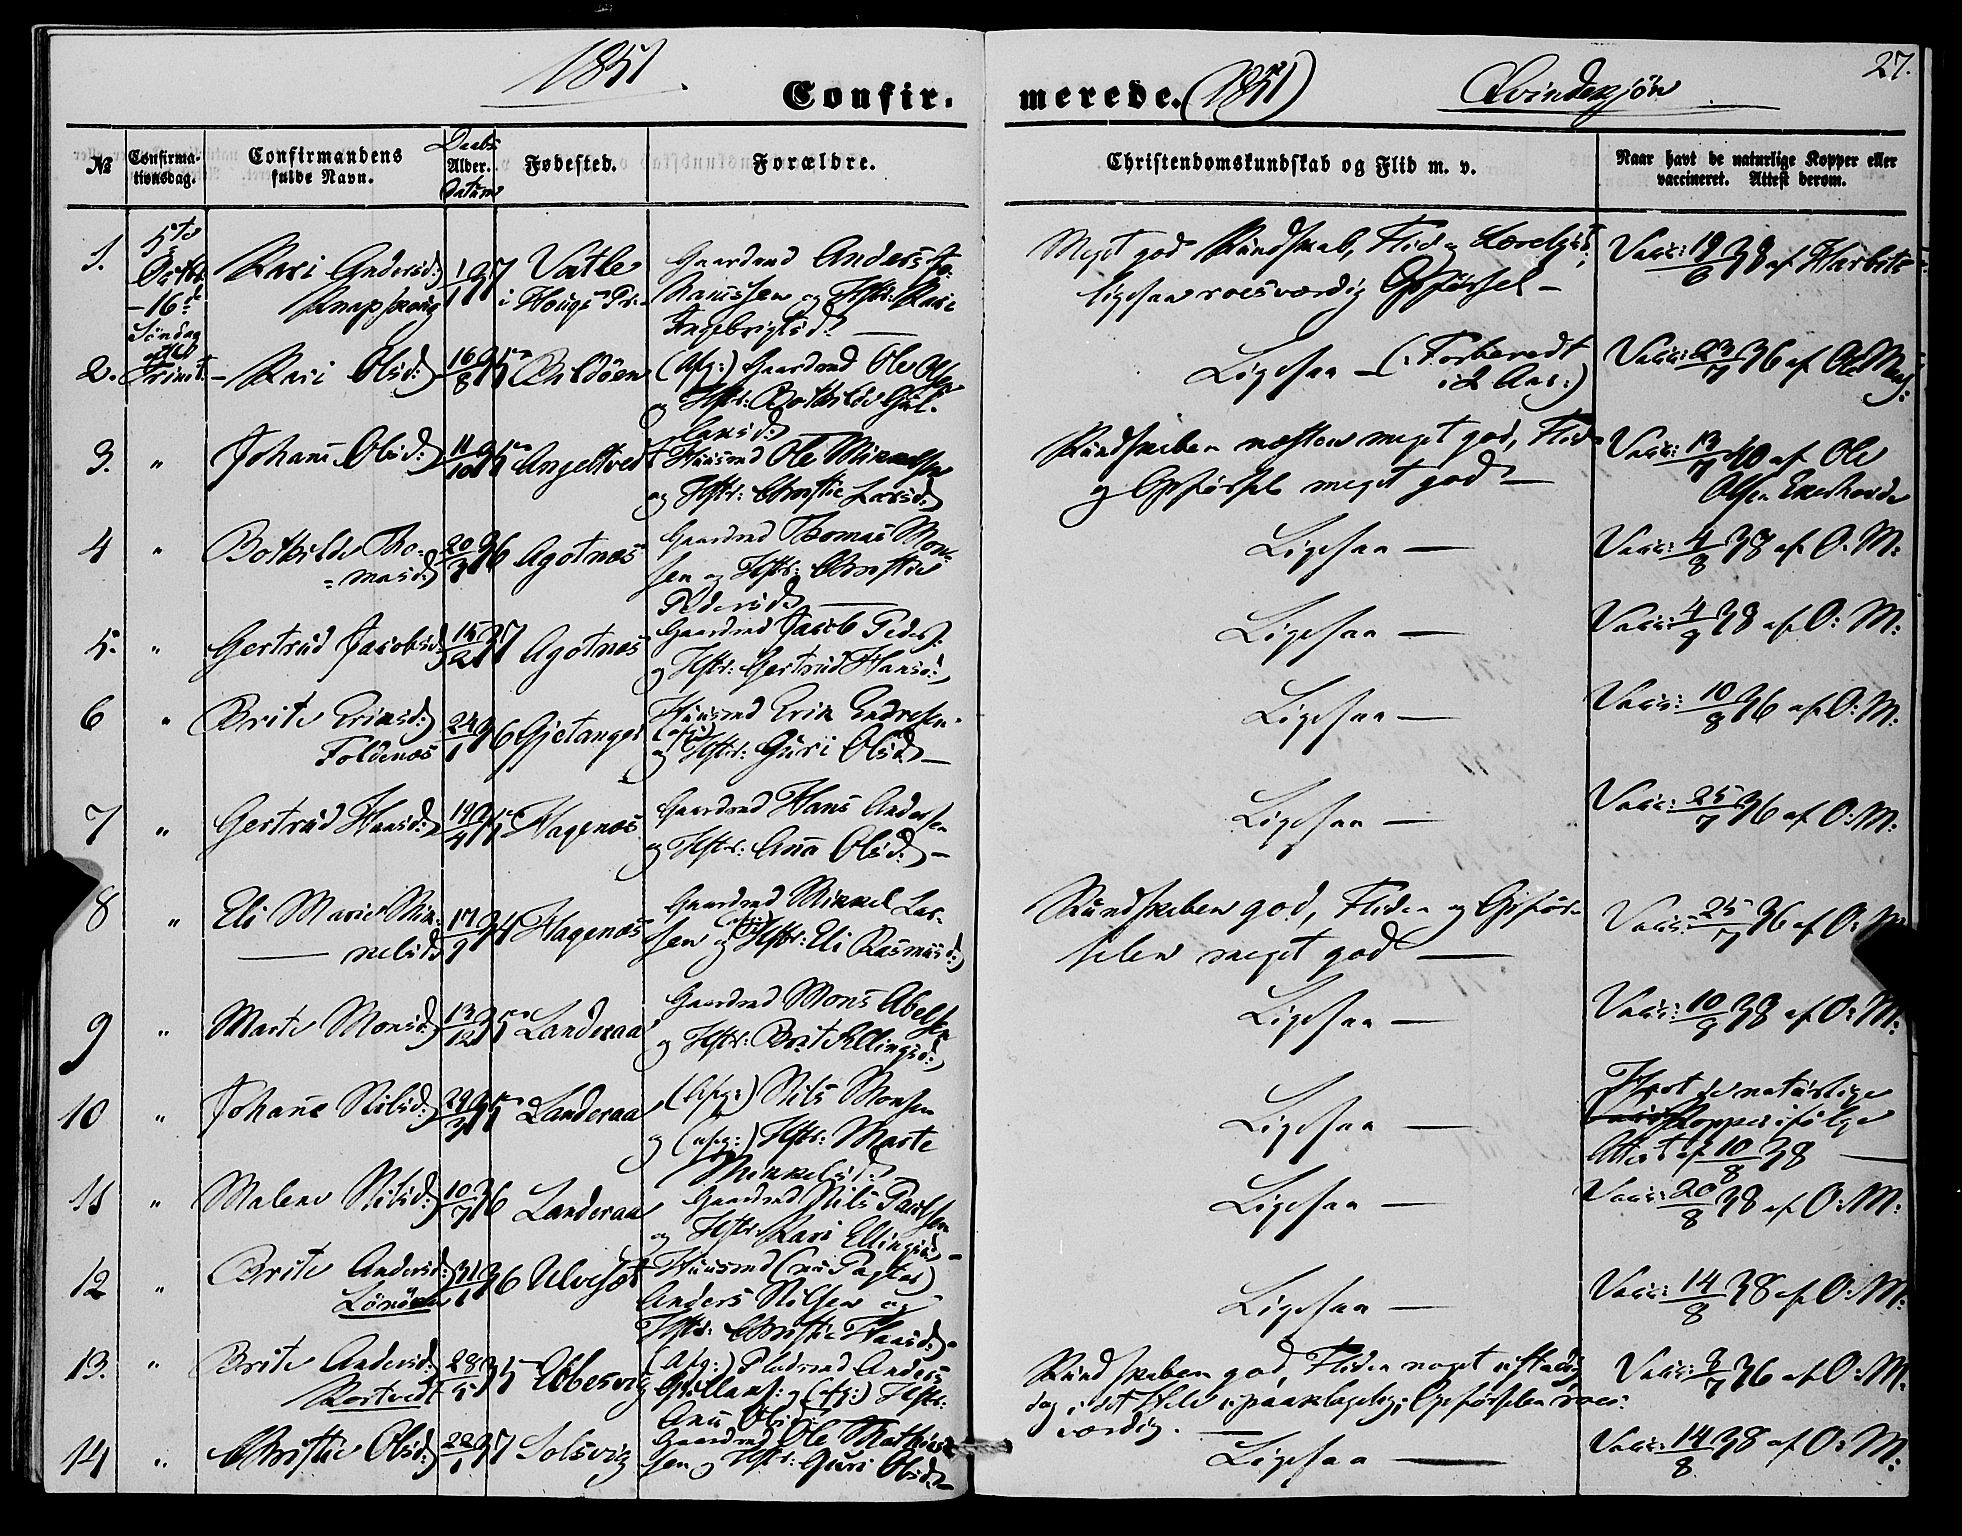 1851
Confirmerede. (1851)
27.
№
Confirmationsdag.
Confirmandens fulde Navn.
Daabs
Alder.
Datum
Fødested.
Forældre.
Christendomskundskab og Flid m. v.
Naar havt de naturlige Kopper eller
vaccineret. Attest derom.
1. 5te Octbr - 16de Søndag Trinit. Kari Andersd: 37 Vatle i Hougs Pr. Gaardmd Anders
og Hstr: Kari
Ingebrigtsd:
Meget god Kundskab, Flid og
ligesaa roesværdig Opførsel –
Vacc: 38 af
2. – Kari Olsd: 16/8 35 Bildøen (Afg:) Gaardmd Ole Olsen
og Hstr: Bothilde
Ligesaa – (: Forberedt
i 2 Aar:)
Vacc: 23/7 36 af Ole
3. " Johanne Olsd: 11/10 35 Angeltvedt Huusmd Ole Mikkelsen
og Hstr: Christie Larsd:
Kundskaben næsten meget god, Flid
og Opførsel meget god –
Vacc: 13/7 40 af Ole
Olsen Ekerhovde
4 " Bothilde Thomasd: 20/3 36 Agotnæs Gaardmd Thomas Monsen og Hstr: Christie
Pedersd:
Ligesaa —
Vacc: 4/8 38 af O: M:
5. " Gertrud Jacobsd: 15/2 37 Agotnæs Gaardmd Jacob Peders:
og Hstr: Gertrud Hansd:
Ligesaa —
Vacc: 4/9 38 af O: M:
6 " Brite Eriksd: Foldenæs 24/1 36 Gjetanger Huusmd Erik Endresen
og (afg:) Hstr: Guri Olsd: —
Ligesaa —
Vacc: 10/8 36 af O: M:
7 " Gertrud Hansd: 19/4 35 Hagenæs Gaardmd Hans Andersen
og Hstr: Anna Olsd: —
Ligesaa —
Vacc: 25/7 36 af O: M:
8 " Eli Marie Mikkelsd: 17/9 34 Hagenæs Gaardmd Mikkel Larsen og Hstr: Eli Rasmusd:
Kundskaben god, Fliden og Opførselen meget god —
Vacc: 25/7 36 af O: M:
9 " Marte Monsd: 13/12 35 Landeraa Gaardmd Mons Abelsen
og Hstr: Brite Ellingsd:
Ligesaa —
Vacc: 10/9 38 af O: M:
10 " Johanne Nilsd: 29/3 35 Landeraa (Afg:) Nils Monsen
og (afg:) Hstr: Marte
Mikkelsd:
Ligesaa —
Havt de naturlige
Kopper ifølge
Attest af 10/8 38 —
11 " Malene Nilsd: 10/7 36 Landeraa Gaardmd Nils Paulsen
og Hstr: Kari Ellingsd: –
Ligesaa —
Vacc: 20/8 38 af O: M:
12 " Brite Andersd: 31/1 36 Ulveset Huusmd
Anders Nilsen og
Hstr: Christie Hansd: –
Ligesaa —
Vacc: 14/8 38 af O: M:
13. " Brite Andersd: 28/5 35 (Afg:) Anders
og (afg:) Hstr:
Anne Olsd:
Kundskaben god, Fliden noget
i det Hele upaaklagelig; Opførselen roesværdig. —
Vacc: 36 af O: M:
14 " Christie Olsd: 22/1 37 Solsvig Gaardmd Ole Mathissen og Hstr: Guri Olsd: –
Ligesaa —
Vacc: 14/8 38 af O: M: